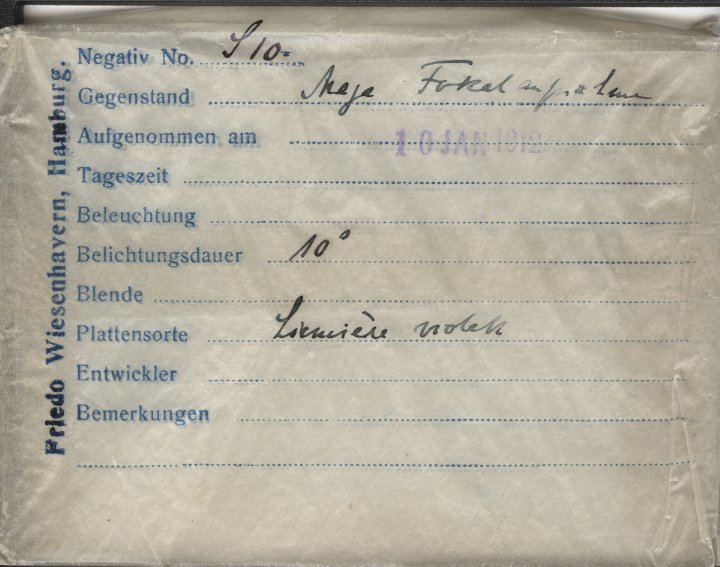 Friedo Wiesenhavern, Hamburg.
Negativ No. S 10.
Gegenstand Maja Fokalaufnahme
Aufgenommen am 10 JAN 1912
Tageszeit
Beleuchtung
Belichtungsdauer 10s
Blende
Plattensorte Lumière violett
Entwickler
Bemerkungen